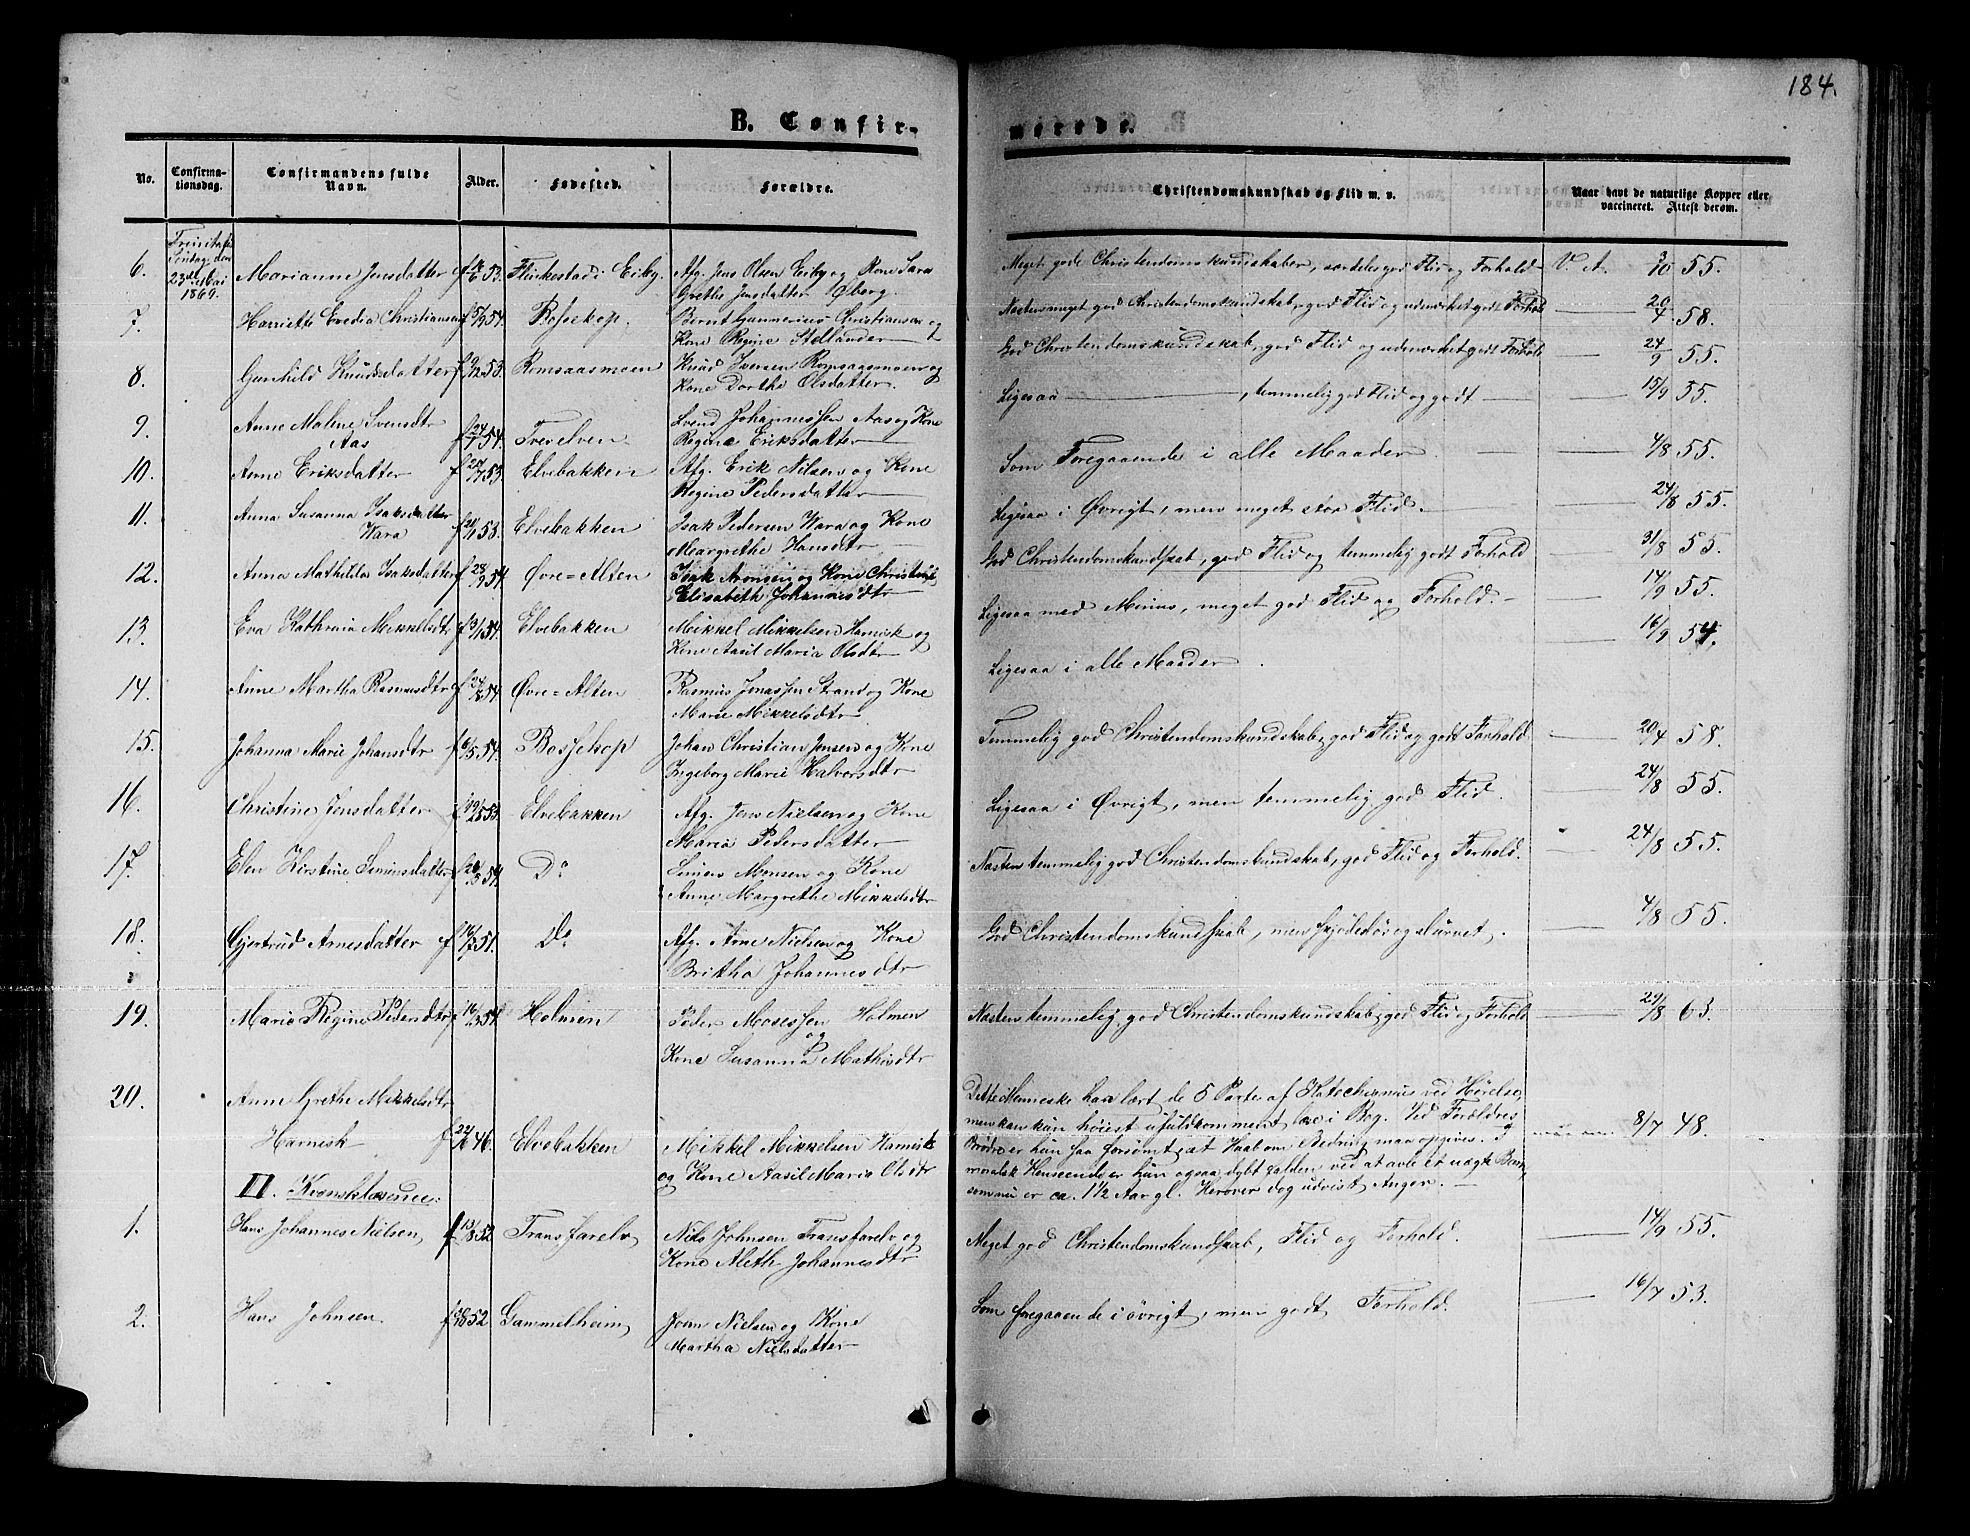 184.
B. Confir-
merede.
No.
Confirma-
tionsdag.
Confirmandens fulde
Navn.
Alder.
Fødested.
Forældre.
Christendomskundskab og Flid m. v.
Naar havt de naturlige Kopper eller
vaccineret. Attest derom.
Søndag den
23de Mai
1869.
6. Marianne Jensdatter f 53. Eiby. Afg. Jens Olsen Eiby og Kone Sara
Grethe Jensdatter Øberg.
Meget gode Christendomskundskaber, særdeles god Flid og Forhold 55.
7. Harriette Evedia Christiansen f 5/9 54. Bossekop. Bernt Gunnerius Christiansen og
Kone Regine
Næsten meget god Christendomskundskab, god Flid og udmærket godt Forhold 20/4 58.
8. Gunhild Knudsdatter f 53. Romsaasmoen Knud Iversen Romsaasmoen og
Kone Dorthe Olsdatter.
God Christendomskundskab, god Flid og udmærket godt Forhold 24/9 55.
9. Anne Malene Svendsdtr
Aas f 54. Tverelven Svend Johannessen Aas og Kone
Regine Eriksdatter
Ligesaa , temmelig god Flid og godt 15/9 55.
10. Anne Eriksdatter f 53. Elvebakken Afg. Erik Nilsen og Kone
Regine Pedersdatter
Som Foregaaende i alle Maader. 4/8 55.
11. Anna Susanna Isaksdatter
Wara f 53. Elvebakken Isak Pedersen Wara og Kone
Margrethe Hansdtr
Ligesaa i Øvrigt, men meget stor Flid. 24/8 55.
12. Anna Mathilde Isaksdatter f 28/9 54. Øvre=Alten Isak Aronsen og Kone Christine
Elisabeth Johannesdtr
God Christendomskundskab, god Flid og temmelig godt Forhold 31/8 55.
13. Eva Kathrine Mikkelsdtr f 3/1 54. Elvebakken Mikkel Mikkelsen Harnisk og
Kone Aasil Maria Olsdtr
Ligesaa med Minus, meget god Flid og Forhold. 14/9 55.
14. Anne Martha Rasmusdtr f 24/8 54. Øvre=Alten Rasmus Jonassen Strand og Kone
Marie Mikkelsdtr
Ligesaa i alle Maader. 16/9 54.
15. Johanna Marie Johansdtr f 6/5 54. Bossekop Johan Christian Jensen og Kone
Ingeborg Marie Halvorsdtr
Temmelig god Christendomskundskab, god Flid og godt Forhold 20/4 58.
16. Christine Jensdatter f 53. Elvebakken Afg. Jens Nielsen og Kone
Maria Pedersdatter
Ligesaa i Øvrigt, men temmelig god Flid. 24/8 55.
17. Elen Kirstine Simonsdatter f 54. Do Simon Monsen og Kone
Anne Margrethe Mikkelsdtr
Næsten temmelig god Christendomskundskab, god Flid og Forhold. 24/8 55.
18. Gjertrud Arnesdatter f 51. Do Afg. Arne Nielsen og Kone
Britha Johannesdtr
God Christendomskundskab, men skjødesløs og slurvet. 4/8 55.
19. Maria Regine Pedersdtr f 54. Holmen Peder Mosessen Holmen
og
Kone Susanna Mathisdtr
Næsten temmelig god Christendomskundskab, god Flid og Forhold 29/8 63.
20. Anne Grethe Mikkelsdtr
Harnisk f 46. Elvebakken Mikkel Mikkelsen Harnisk
og Kone Aasil Maria Olsdtr
Dette Menneske har lært de 5 Parter af Katechismus ved Hørelse,
men kan kun høiest ufuldkomment læse i Bog. Ved Forældres
Brøde er hun saa forsømt, at Haab om Bedring maa opgives. I
moralsk Henseende er hun ogsaa dybt falden ved at avle et uægte Barn,
som nu er ca. 1½ Aar gl. Herover dog udvist Anger. 8/7 48.
II. Kvænsktalende:
1. Hans Johannes Nielsen f 13/8 52 Transfarelv Nils Johnsen Transfarelv og
Kone Aleth Johannesdtr
Meget god Christendomskundskab, Flid og Forhold. 14/9 55.
2. Hans Johnsen f 52 Gammelheim John Nielsen og Kone
Martha Nielsdatter
Som foregaaende i øvrigt, men godt Forhold. 16/7 53.